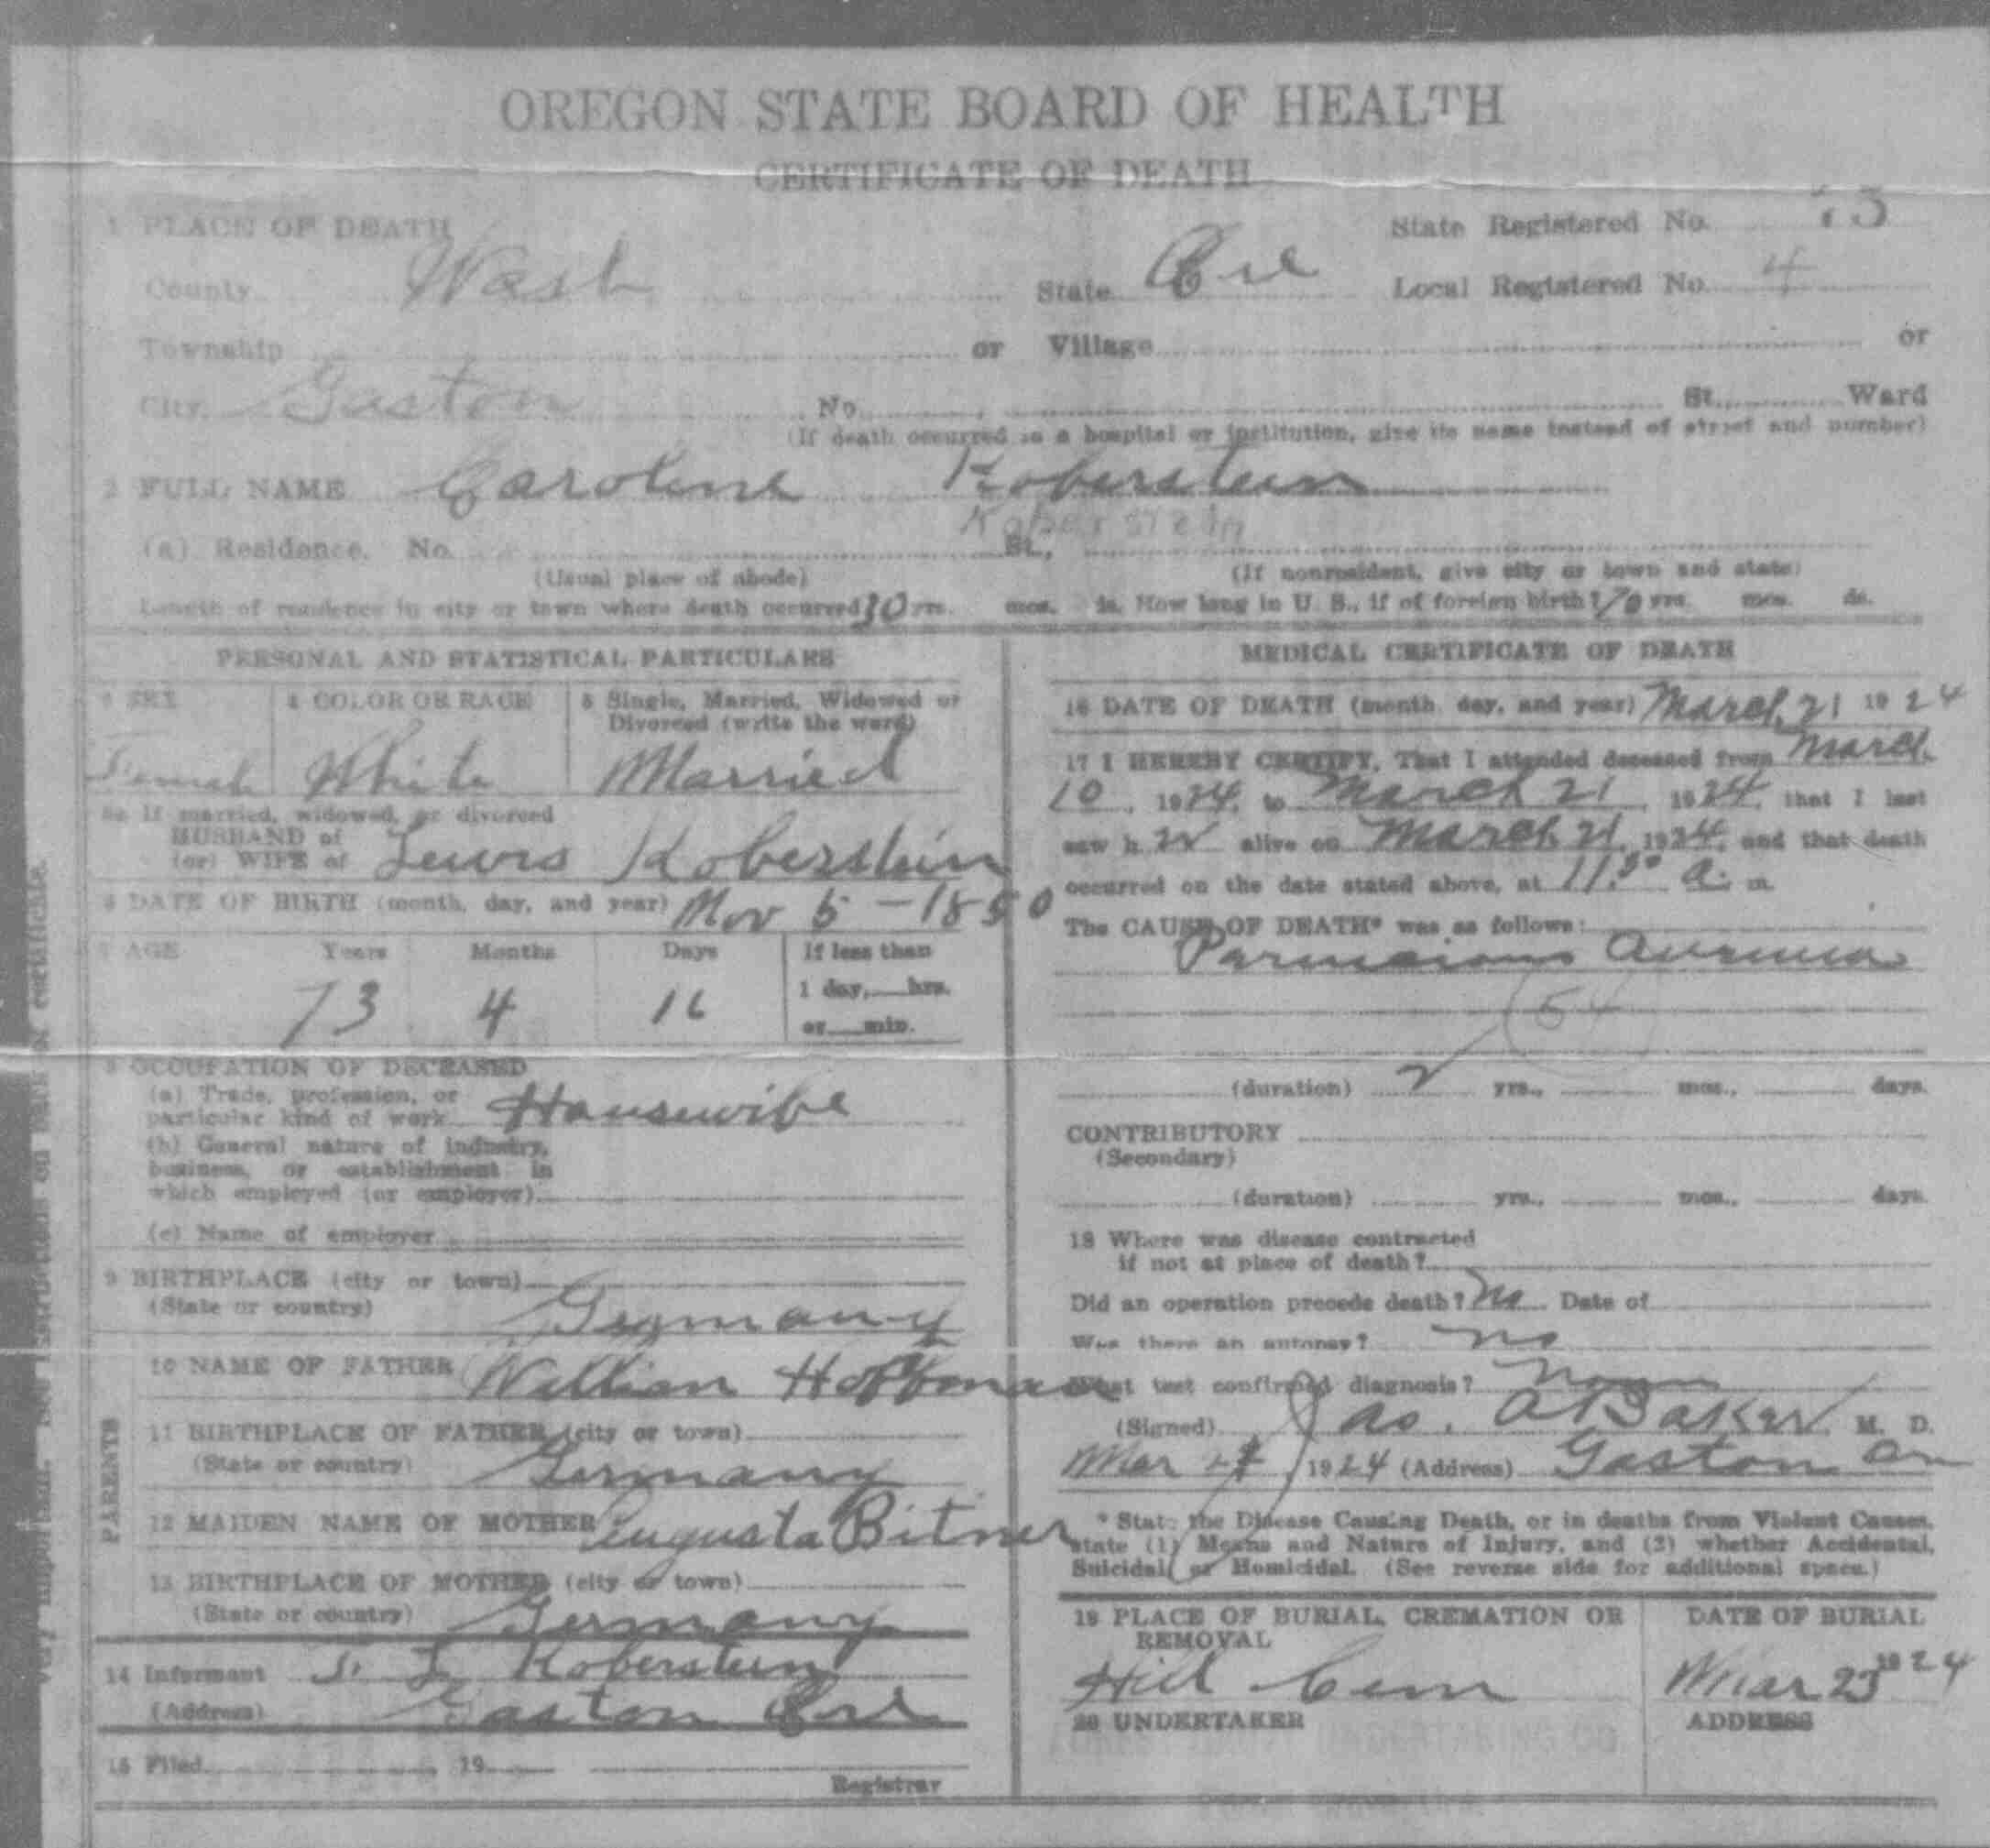 OREGON STATE BOARD OF HEALTH
CERTIFICATE OF DEATH
1 PLACE OF DEATH
State Registered No. 73
County Wash State Ore Local Registered No. 4
Township or Village or
City Gaston No. St. Ward
(If death occurred in a hospital or institution, give its name instead of street and number)
2 FULL NAME Caroline Koberstein
Koberstein
(a) Residence. No. St.,
(Usual place of abode) (If nonresident, give city or town and state)
Length of residence in city or town where death occurred 30 yrs. mos. ds. How long in U. S., if of foreign birth? 70 yrs. mos. ds.
PERSONAL AND STATISTICAL PARTICULARS
3 SEX 4 COLOR OR RACE 5 Single, Married, Widowed or
Divorced (write the word)
Female White Married
5a If married, widowed, or divorced
HUSBAND of
(or) WIFE of Lewis Koberstein
6 DATE OF BIRTH (month, day, and year) Nov 5 - 1850
7 AGE Years Months Days If less than
1 day, hrs.
or min.
73 4 16
8 OCCUPATION OF DECEASED
(a) Trade, profession, or
particular kind of work Housewife
(b) General nature of industry,
business, or establishment in
which employed (or employer)
(c) Name of employer
9 BIRTHPLACE (city or town)
(State or country) Germany
PARENTS
10 NAME OF FATHER William Hoffman
11 BIRTHPLACE OF FATHER (city or town)
(State or country) Germany
12 MAIDEN NAME OF MOTHER Augusta Bitner
13 BIRTHPLACE OF MOTHER (city or town)
(State or country) Germany
14 Informant L Koberstein
(Address) Gaston Ore
15 Filed 19
Registrar
MEDICAL CERTIFICATE OF DEATH
16 DATE OF DEATH (month, day, and year) March 21 1924
17 I HEREBY CERTIFY, That I attended deceased from March
10, 1924, to March 21, 1924, that I last
saw h er alive on March 21, 1924, and that death
occurred on the date stated above, at 11.50 a. m.
The CAUSE OF DEATH* was as follows:
54
(duration) 2 yrs., mos., days.
CONTRIBUTORY
(Secondary)
(duration) yrs., mos., days.
18 Where was disease contracted
if not at place of death?
Did an operation precede death? No Date of
Was there an autopsy? no
What test confirmed diagnosis?
(Signed) Jas. A Baker M. D.
Mar 1924 (Address) Gaston Or
* State the Disease Causing Death, or in deaths from Violent Causes,
state (1) Means and Nature of Injury, and (2) whether Accidental,
Suicidal, or Homicidal. (See reverse side for additional space.)
19 PLACE OF BURIAL, CREMATION OR
REMOVAL
DATE OF BURIAL
Hill Cem Mar 23 1924
20 UNDERTAKER ADDRESS